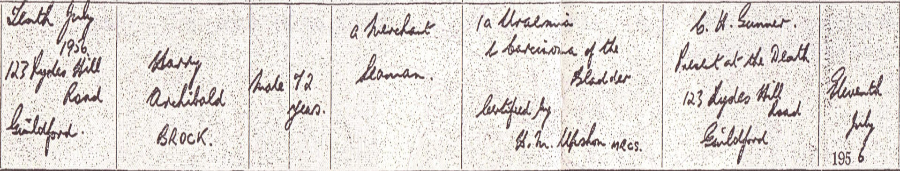 Tenth July
1956
123 Rydes Hill
Road
Guildford.
Harry
Archibald
BROCK.
Male
72
years.
a Merchant
Seaman.
1a Uraemia
b Carcinoma of the
Bladder
Certified by
H. M. Upshon MRCS.
C. H. Gunner.
Present at the Death
123 Rydes Hill
Road
Guildford
Eleventh
July
1956